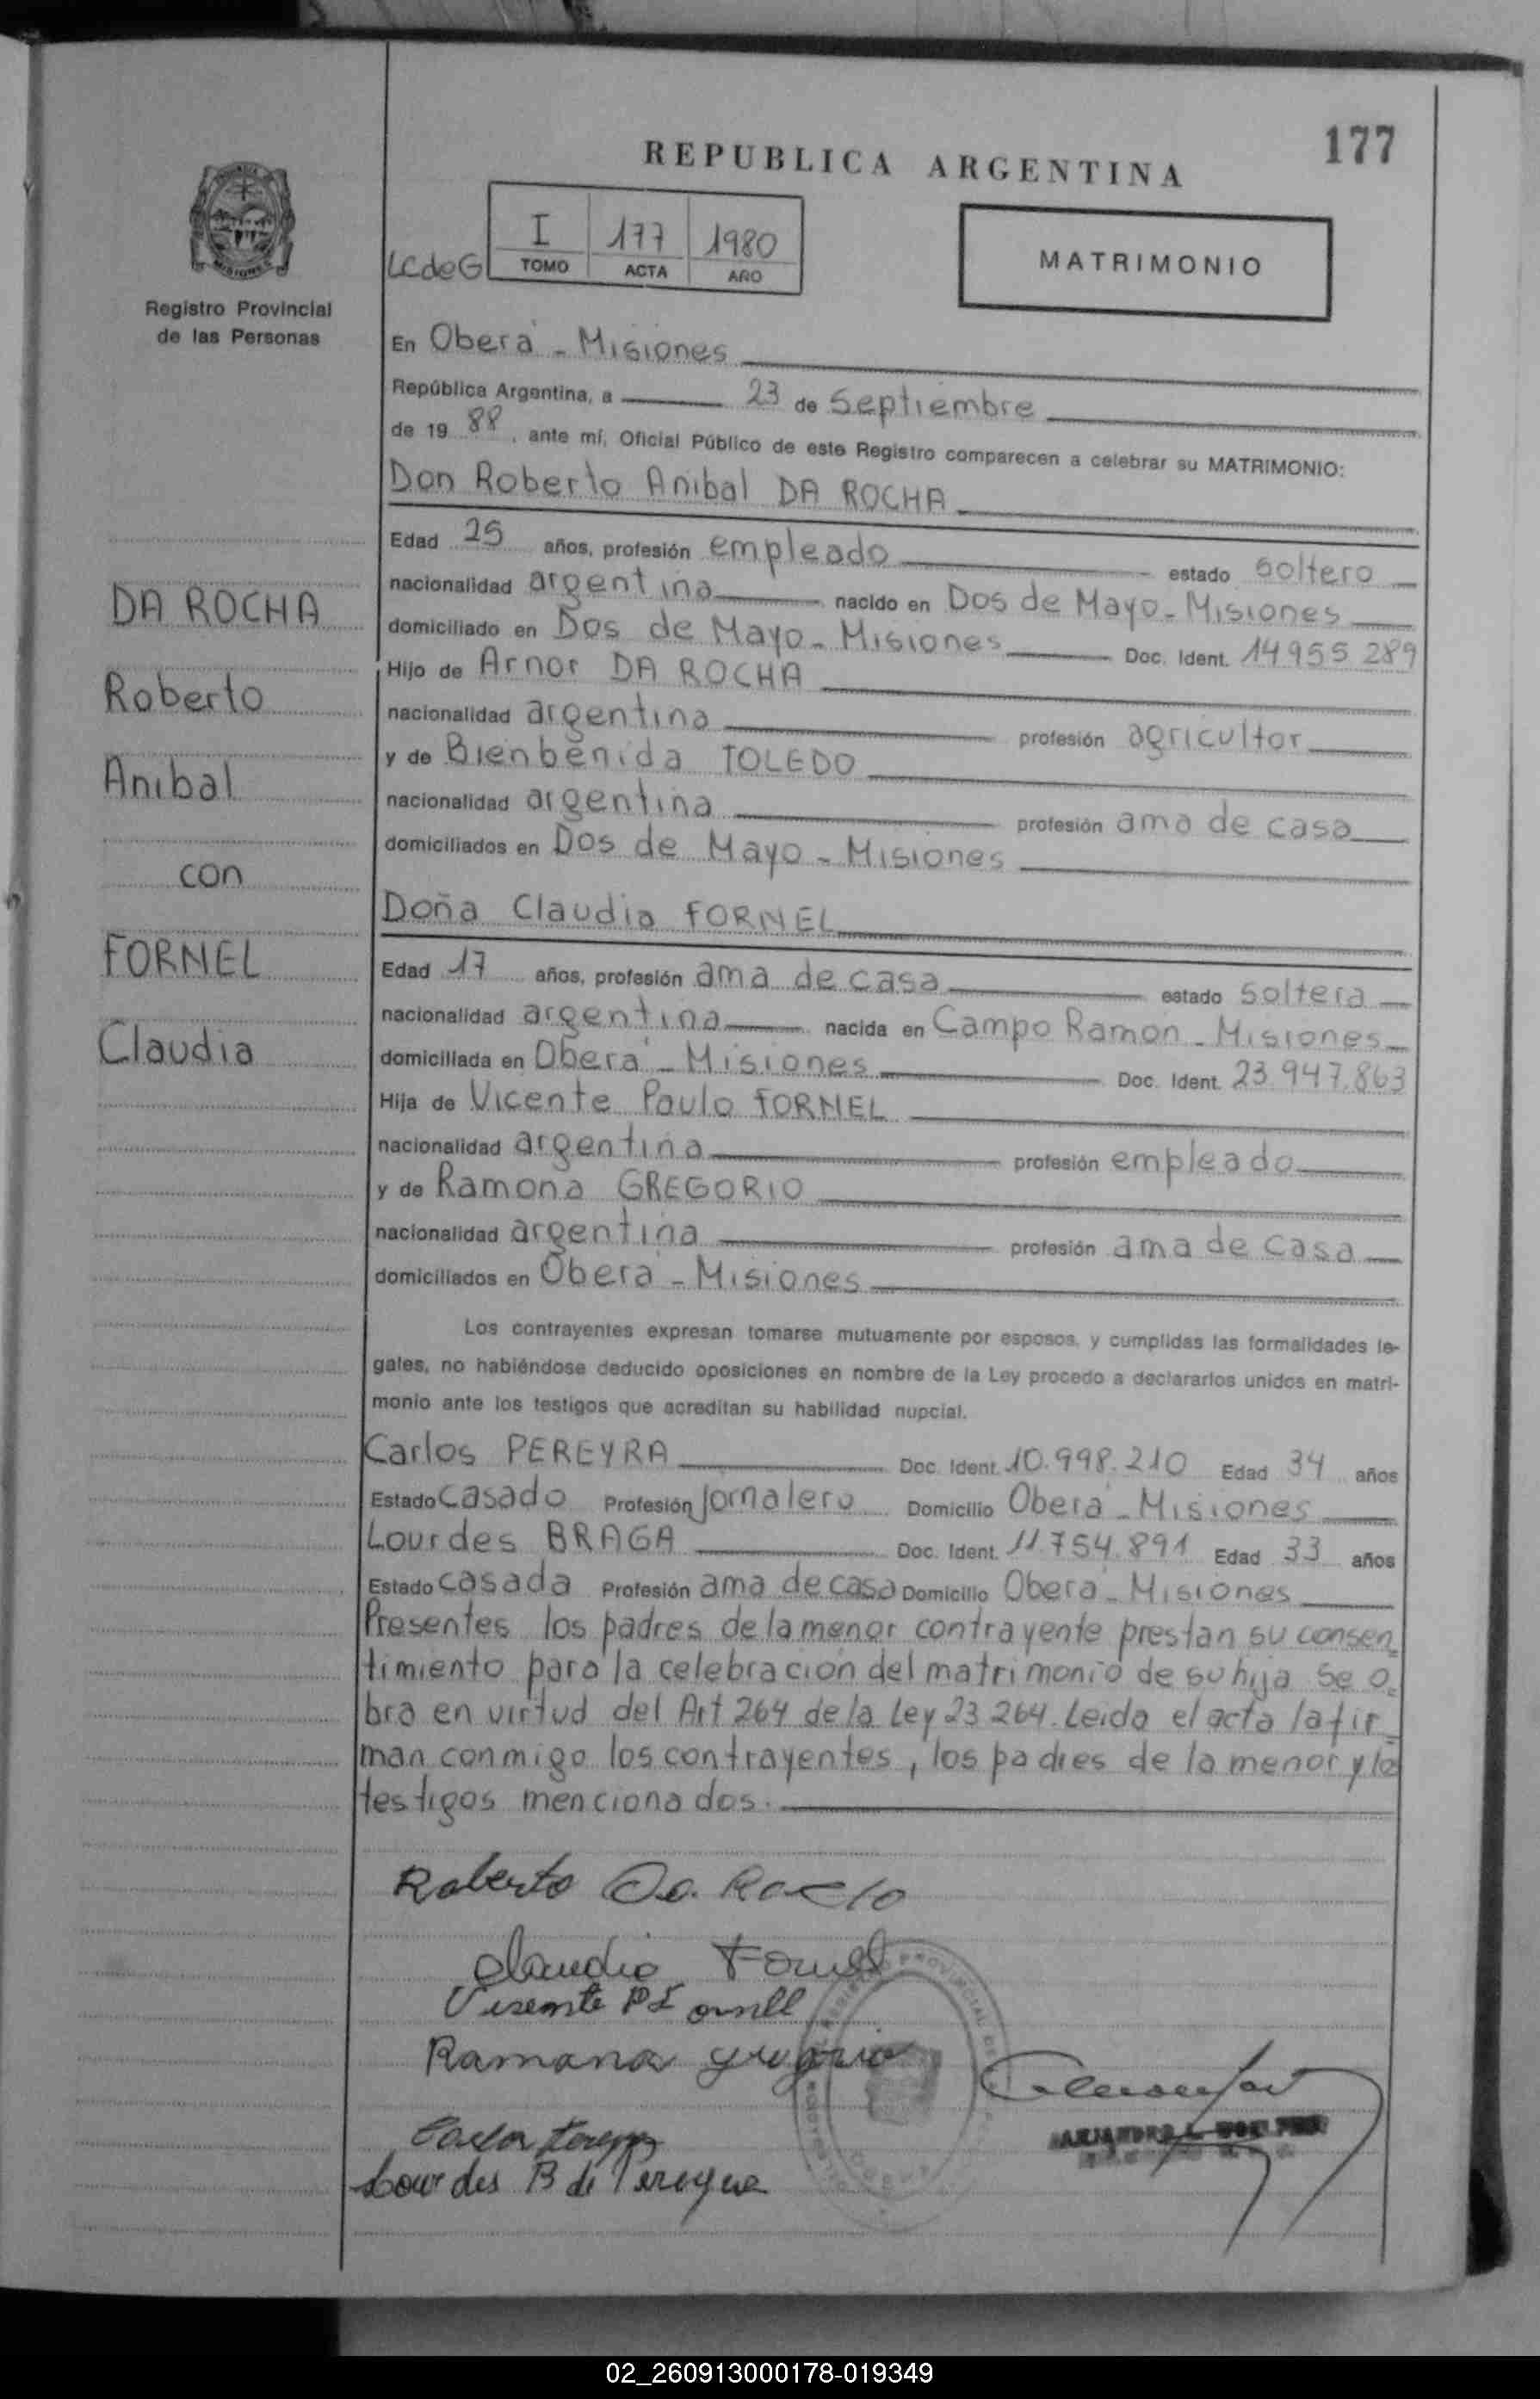 177
REPUBLICA ARGENTINA
MISIONES
Registro Provincial
de las Personas
LCdeG
I 177 1980
TOMO ACTA AÑO
MATRIMONIO
En Oberá - Misiones
República Argentina, a 23 de Septiembre
de 19 88, ante mí, Oficial Público de este Registro comparecen a celebrar su MATRIMONIO:
Don Roberto Anibal DA ROCHA
Edad 25 años, profesión empleado estado soltero
nacionalidad argentina nacido en Dos de Mayo - Misiones
domiciliado en Dos de Mayo - Misiones Doc. Ident. 14955289
Hijo de Arnor DA ROCHA
nacionalidad argentina profesión agricultor
y de Bienbenida TOLEDO
nacionalidad argentina profesión ama de casa
domiciliados en Dos de Mayo - Misiones
Doña Claudia FORNEL
Edad 17 años, profesión ama de casa estado soltera
nacionalidad argentina nacida en Campo Ramon - Misiones
domiciliada en Oberá - Misiones Doc. Ident. 23.947.863
Hija de Vicente Paulo FORNEL
nacionalidad argentina profesión empleado
y de Ramona GREGORIO
nacionalidad argentina profesión ama de casa
domiciliados en Oberá - Misiones
DA ROCHA
Roberto
Anibal
con
FORNEL
Claudia
Los contrayentes expresan tomarse mutuamente por esposos, y cumplidas las formalidades le-
gales, no habiéndose deducido oposiciones en nombre de la Ley procedo a declararlos unidos en matri-
monio ante los testigos que acreditan su habilidad nupcial.
Carlos PEREYRA Doc. Ident. 10.998.210 Edad 34 años
Estado casado Profesión jornalero Domicilio Oberá - Misiones
Lourdes BRAGA Doc. Ident. 11.754.891 Edad 33 años
Estado casada Profesión ama de casa Domicilio Oberá - Misiones
Presentes los padres de la menor contrayente prestan su consen
timiento para la celebracion del matrimonio de su hija se o
bra en virtud del Art 264 de la Ley 23 264. Leida el acta la fir
man conmigo los contrayentes, los padres de la menor y lo
testigos mencionados.
Roberto Da Rocho
Claudia Fornel
Visente P Fornell
Ramona gregorio
Lourdes B de Pereyra
02_260913000178-019349